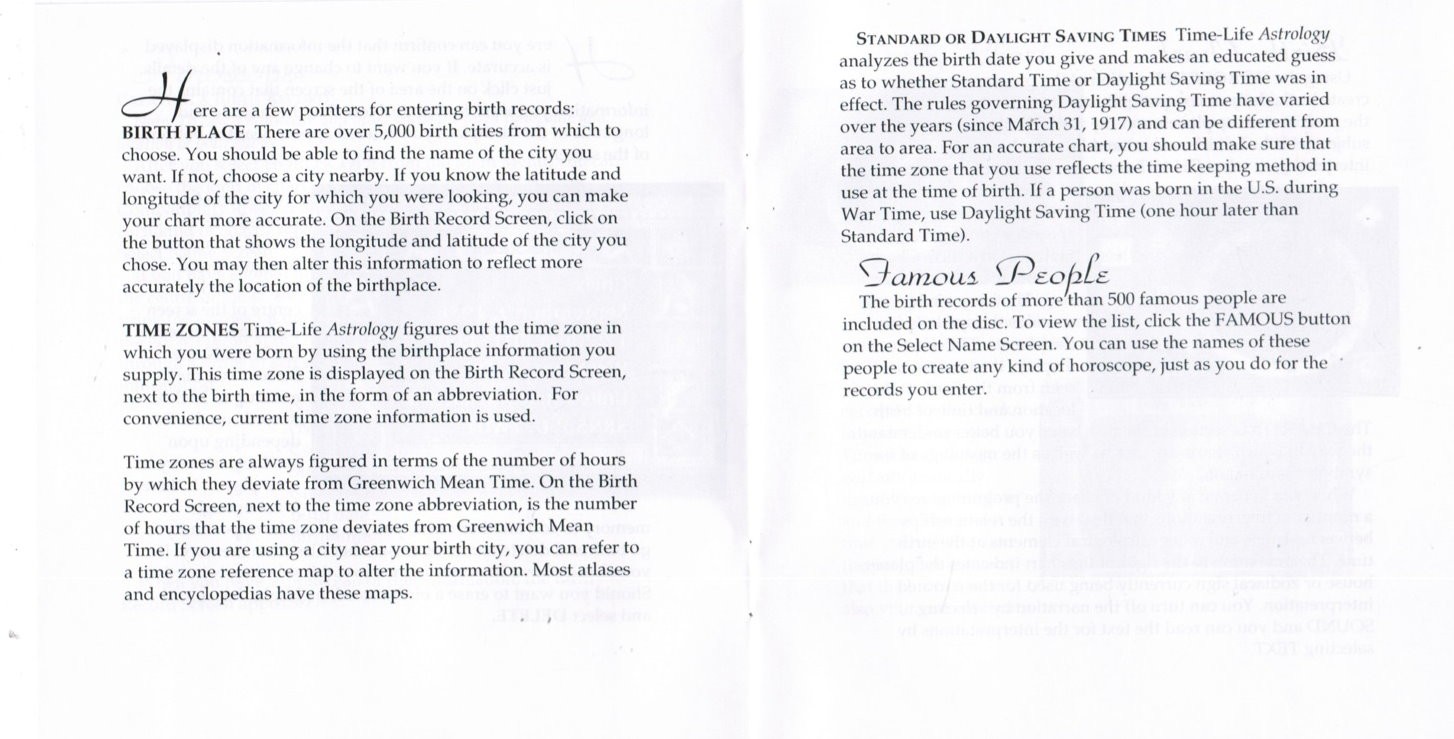 Here are a few pointers for entering birth records:
BIRTH PLACE There are over 5,000 birth cities from which to
choose. You should be able to find the name of the city you
want. If not, choose a city nearby. If you know the latitude and
longitude of the city for which you were looking, you can make
your chart more accurate. On the Birth Record Screen, click on
the button that shows the longitude and latitude of the city you
chose. You may then alter this information to reflect more
accurately the location of the birthplace.
TIME ZONES Time-Life Astrology figures out the time zone in
which you were born by using the birthplace information you
supply. This time zone is displayed on the Birth Record Screen,
next to the birth time, in the form of an abbreviation. For
convenience, current time zone information is used.
Time zones are always figured in terms of the number of hours
by which they deviate from Greenwich Mean Time. On the Birth
Record Screen, next to the time zone abbreviation, is the number
of hours that the time zone deviates from Greenwich Mean
Time. If you are using a city near your birth city, you can refer to
a time zone reference map to alter the information. Most atlases
and encyclopedias have these maps.
STANDARD OR DAYLIGHT SAVING TIMES Time-Life Astrology
analyzes the birth date you give and makes an educated guess
as to whether Standard Time or Daylight Saving Time was in
effect. The rules governing Daylight Saving Time have varied
over the years (since March 31, 1917) and can be different from
area to area. For an accurate chart, you should make sure that
the time zone that you use reflects the time keeping method in
use at the time of birth. If a person was born in the U.S. during
War Time, use Daylight Saving Time (one hour later than
Standard Time).
Famous People
The birth records of more than 500 famous people are
included on the disc. To view the list, click the FAMOUS button
on the Select Name Screen. You can use the names of these
people to create any kind of horoscope, just as you do for the
records you enter.